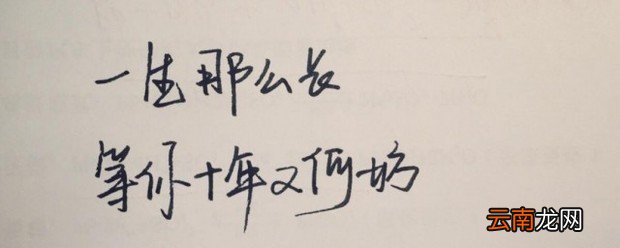 一生那么长
等你十年又何妨
云南龙网